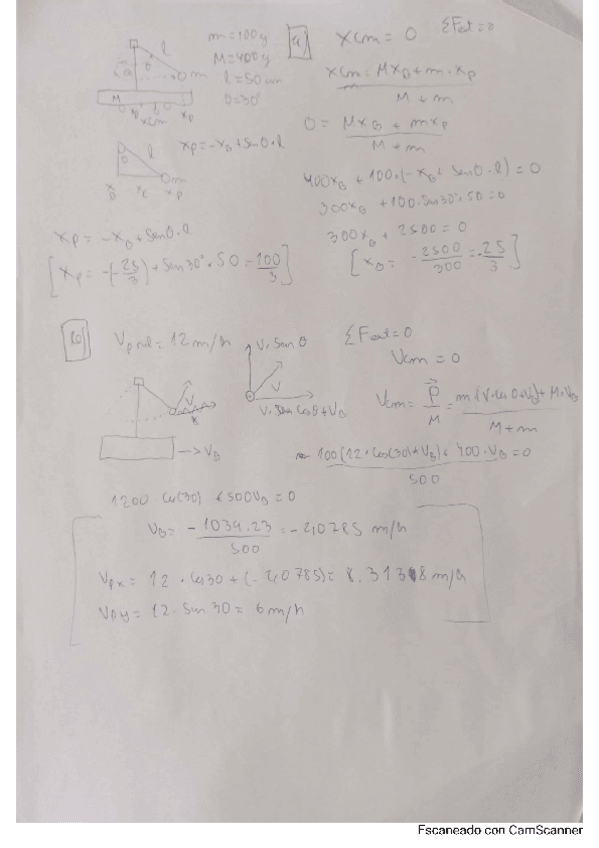 m=100g
M=400g
l=50cm
θ=30°
l
θ
m
M
xcm
xp
a)
xcm = 0
ΣFext=0
xcm = MxB + m·xp
M+m
0 = MxB + mxp
M+m
l
θ
m
xp
xp=-xB+senθ·l
400xB + 100·(-xB + senθ·l) = 0
300xB + 100·sen30°·50=0
300xB + 2500 = 0
[xB = -2500/300 = -25/3]
xp = -xB + senθ·l
[xp = -(-25/3) + sin30°·50 = 100/3]
Vprel = 12 m/h
V·sen θ
V
ΣFext=0
Vcm = 0
V
→VB
Vcm = P/M = m(V·cosθ+VB)+M·VB
M+m
100(12·cos(30)+VB)+400·VB=0
500
1200·cos(30)+500VB=0
VB = -1039.23/500 = -2,0785 m/h
Vpx = 12·cos30+(-2,0785)= 8.3138 m/h
Vpy = 12·sin30= 6m/h
Escaneado con CamScanner